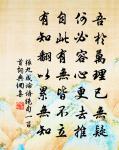 吾於萬理已無疑
何必容心更去推
自此有無皆不立
有知以累無知
張九成論語絕句一百
首詞典網集